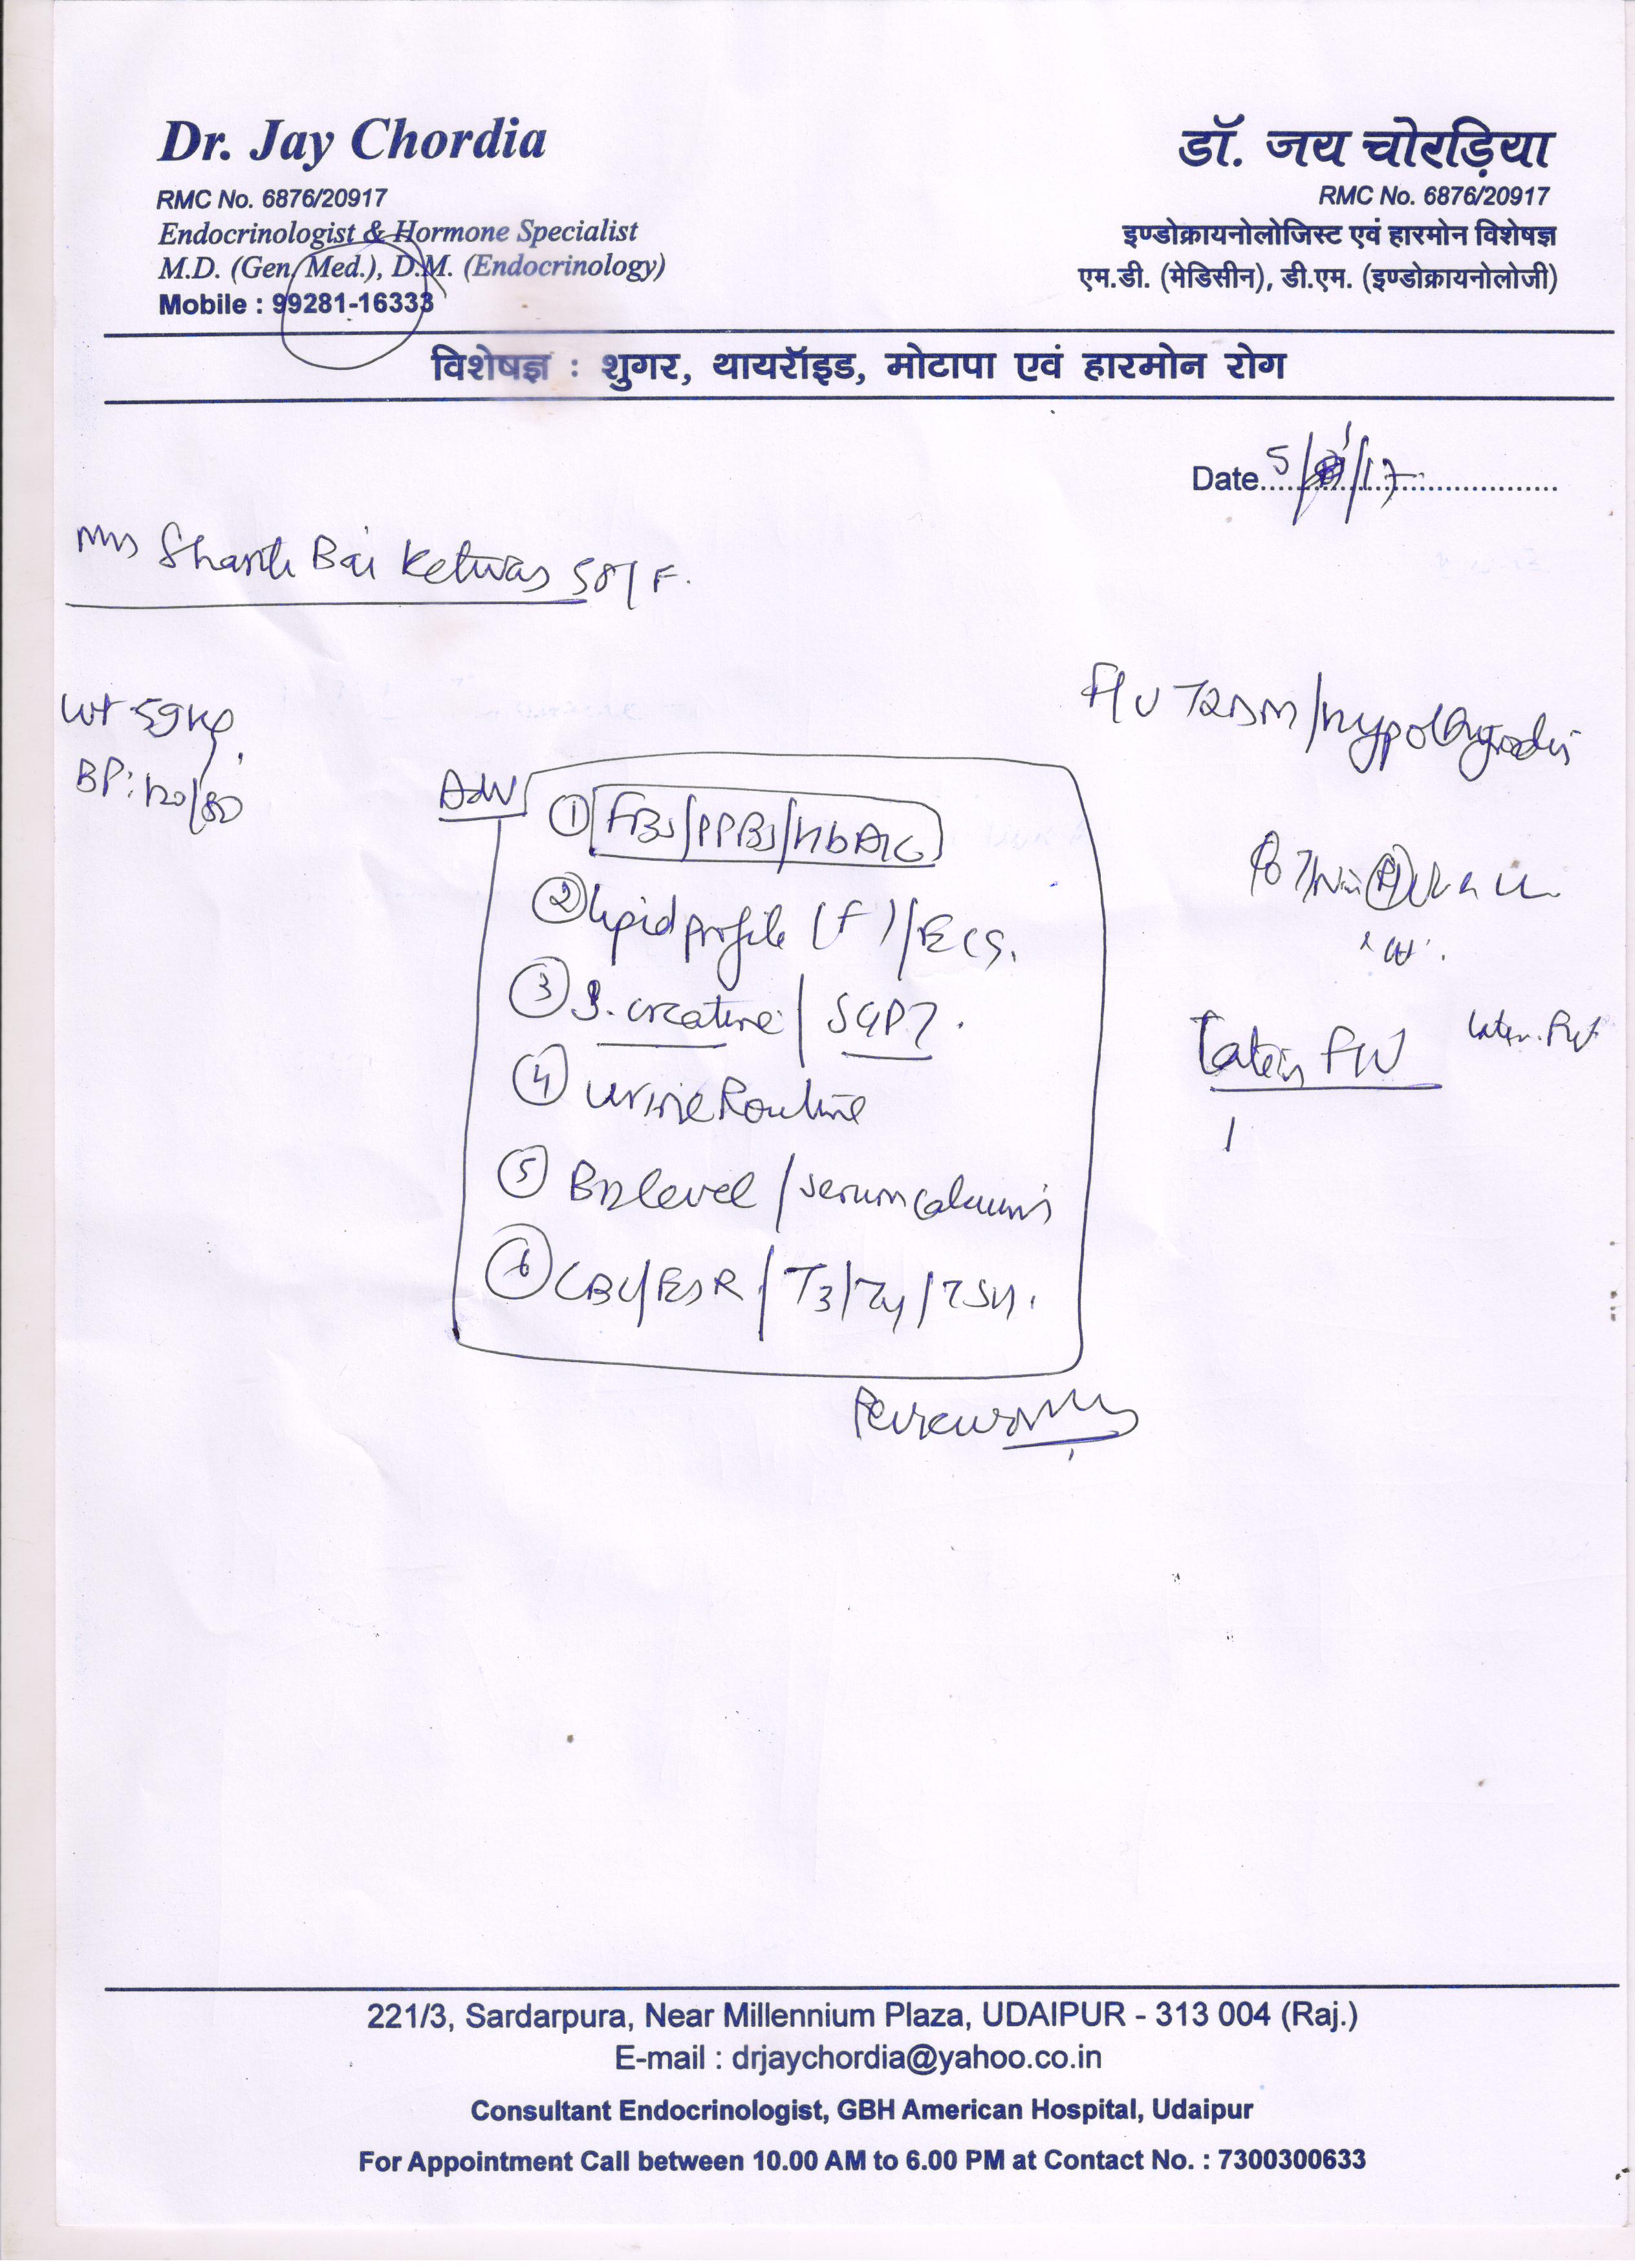 Dr. Jay Chordia
RMC No. 6876/20917
Endocrinologist & Hormone Specialist
M.D. (Gen. Med.), D.M. (Endocrinology)
Mobile : 99281-16333
डॉ. जय चोरड़िया
RMC No. 6876/20917
इण्डोक्रायनोलोजिस्ट एवं हारमोन विशेषज्ञ
एम.डी. (मेडिसीन), डी.एम. (इण्डोक्रायनोलोजी)
विशेषज्ञ : शुगर, थायरॉइड, मोटापा एवं हारमोन रोग
Date 5/1/17
Mrs Shanti Bai 58/F.
Wt 59 kg
BP: 120/80
F/U T2DM/hypothyroidi
Adv
① FBS/PPBS/HbA1c
② lipid profile (F)/ECG.
③ S. creatine/SGPT.
④ urine Routine
⑤ B12 level/serum calcium
⑥ CBC/ESR/T3/T4/TSH.
221/3, Sardarpura, Near Millennium Plaza, UDAIPUR - 313 004 (Raj.)
E-mail : drjaychordia@yahoo.co.in
Consultant Endocrinologist, GBH American Hospital, Udaipur
For Appointment Call between 10.00 AM to 6.00 PM at Contact No. : 7300300633